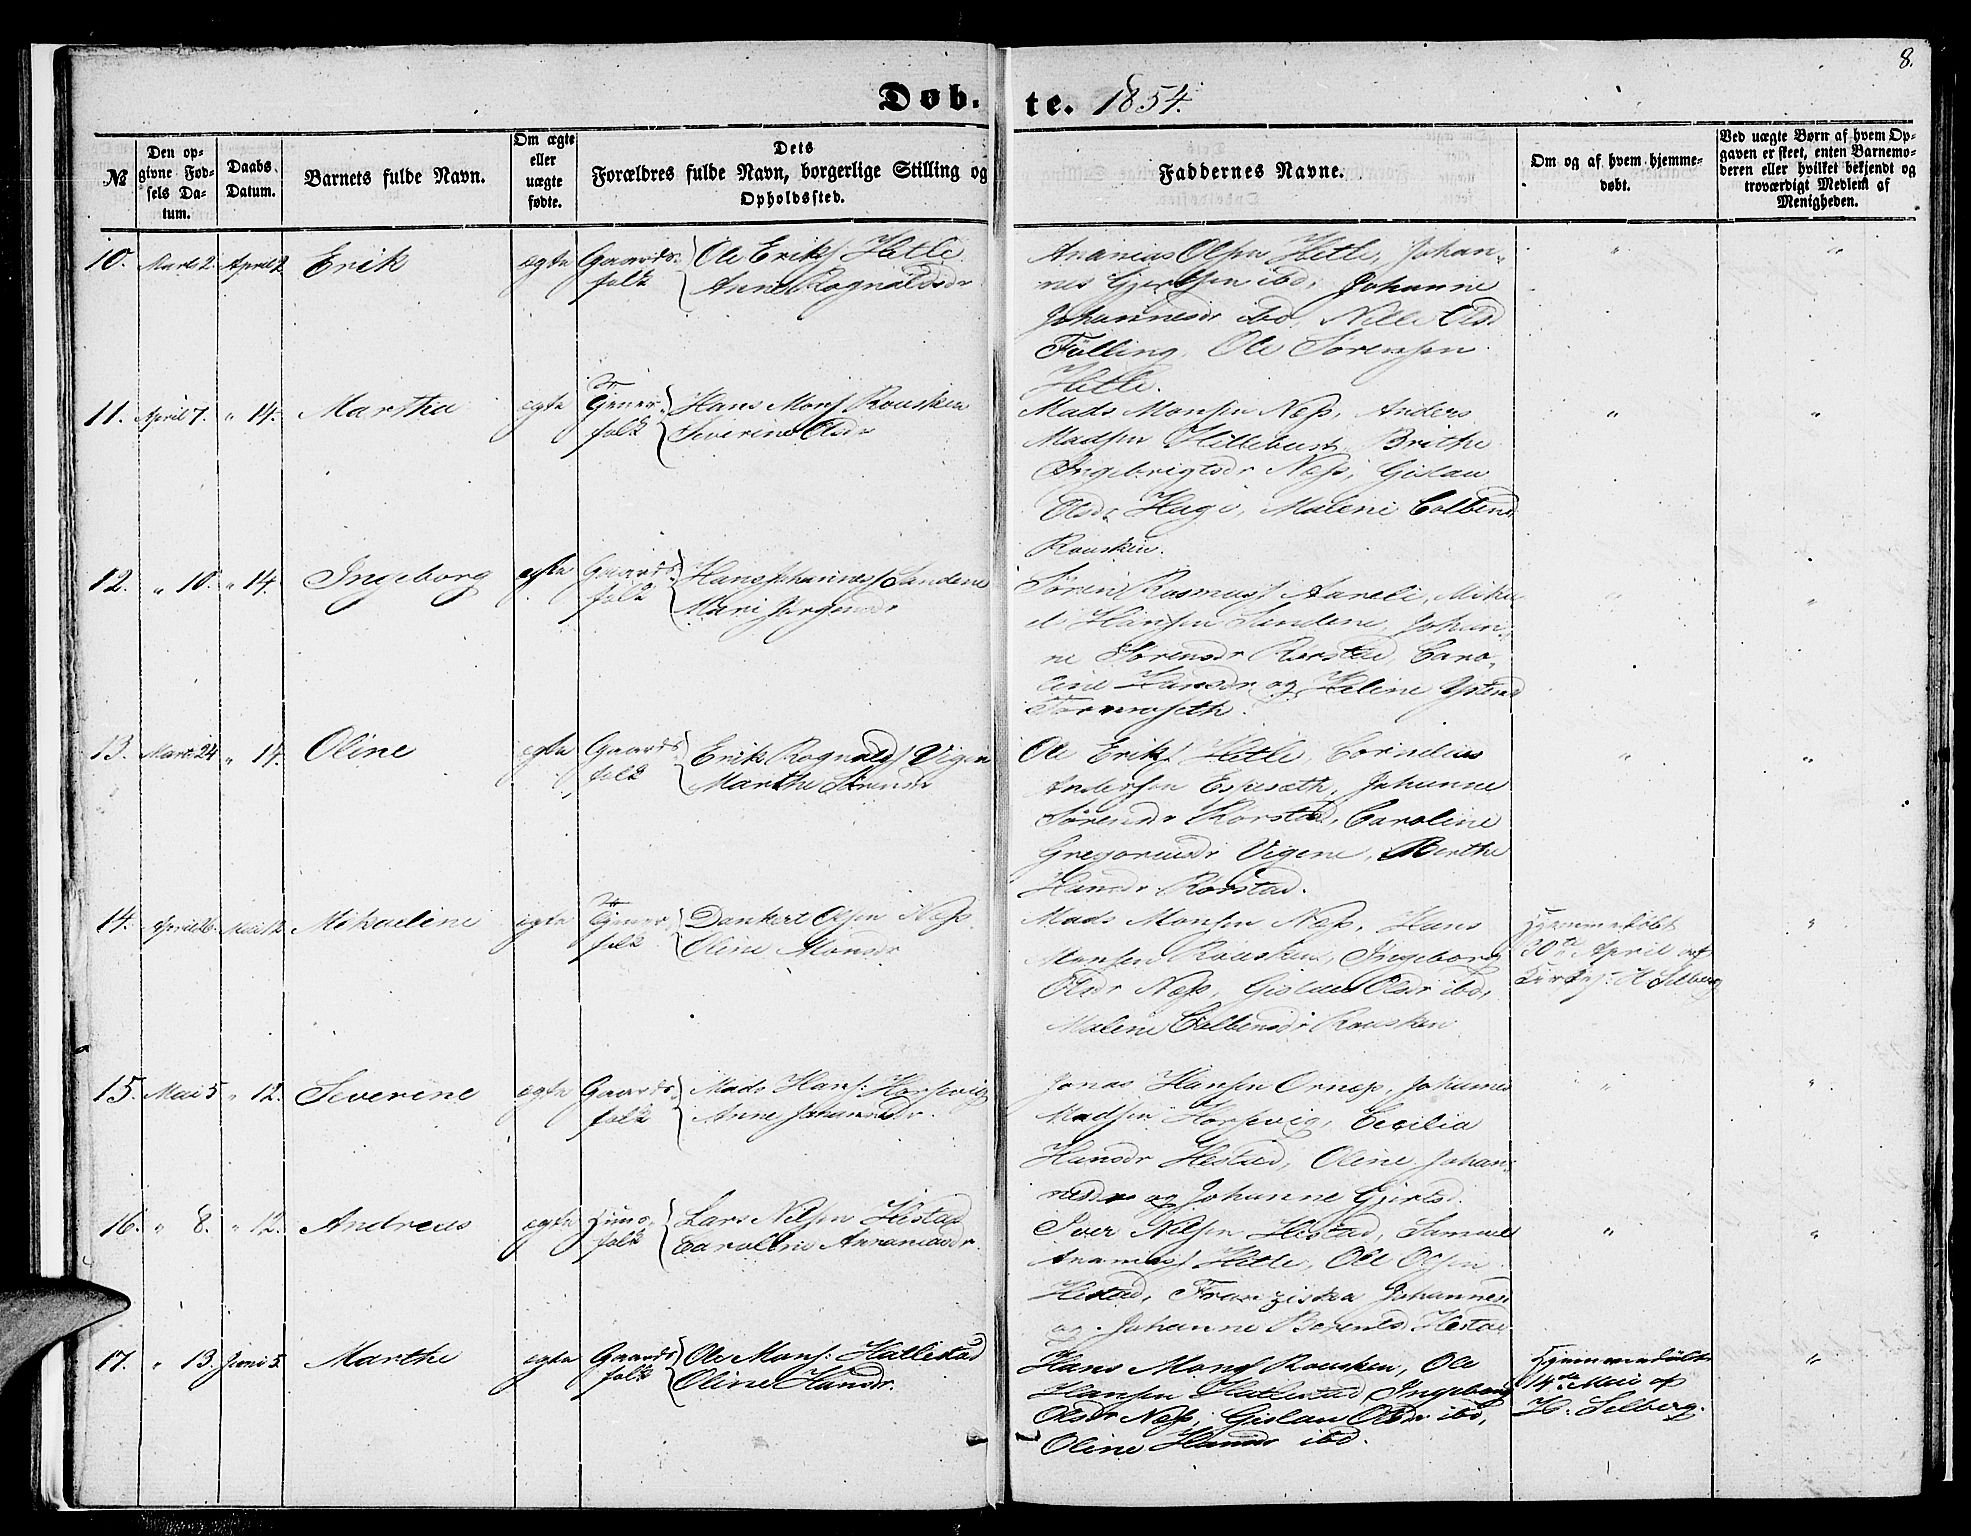 8.
Døb. te. 1854.
№
Den op-
givne Fød-
sels Da-
tum.
Daabs.
Datum.
Barnets fulde Navn.
Om ægte
eller
uægte
fødte.
Dets
Forældres fulde Navn, borgerlige Stilling og
Opholdssted.
Faddernes Navne.
Om og af hvem hjemme-
døbt.
Ved uægte Børn af hvem Op-
gaven er skeet, enten Barnemo-
deren eller hvilket bekjendt og
troværdigt Medlem af
Menigheden.
10. Marts 2. April 2. Erik ægte Gaards- Ole Eriks. Hetle
folk Anne Rognaldsdr
Ananias Olsen Hetle, Johan-
nes Gjertsen ibd, Johanne
Johannesdr ibd, Nille Olsd
Følling, Ole Sørensen
Hetle.
11. April 7. " 14. Martha ægte Tjener- Hans Mons. Rousken
folk Severine Olsdr
Mads Monsen Næss, Anders
Madsen Hillebust, Brithe
Ingebrigtsdr Næss, Gislau
Olsdr Hage, Malene Colbensd
Rousken.
12. " 10. " 14. Ingeborg ægte Gaards- Hans Johanness. Sandene
folk Mari Jørgensdr
Søren Rasmus. Aareli, Mika-
el Hansen Sandene, Johan-
ne Sørensdr Rørstad, Caro-
line Hansdr og Heline
13. Marts 24 " 14. Oline ægte Gaards- Erik Rognalds. Vigen
folk Marthe Sørensdr
Ole Eriks. Hetle, Cornelius
Andersen Espesæth, Johanne
Sørensdr Rørstad, Caroline
Gregoriusdr Vigene, Berthe
Hansdr Rørstad.
14. April 26. Mai 12. Mikaeline ægte Tjener- Dankert Olsen Næss.
folk Oline Monsdr
Mads Monsen Næss, Hans
Monsen Rousken, Ingeborg
Olsdr Næss, Gislau Olsdr ibd,
Malene Colbensdr Rousken
Hjemmedøbt
30te April af
Kirkes. H Selberg
15. Mai 5 " 12. Severine ægte Gaards- Mads Hans. Horsevig
folk Anne Johannesdr.
Jonas Hansen Ornes, Johannes
Madsen Horsevig, Cecilia
Hansdr Hestad, Oline Johan-
nesdr og Johanne Gjertsd.
16. " 8. " 12. Andreas ægte Huus- Lars Nilsen Hestad
folk Caroline Annaniasdr.
Iver Nilsen Hestad, Samuel
Ananias. Hetle, Ole Olsen
Hestad, Franziska Johannesd
og Johanne Berentsd. Hestad
17. " 13. Juni 5. Marthe ægte Gaards- Ole Mons. Hatlestad
folk Oline Hansdr.
Hans Mons. Rousken, Ole
Hansen Hatlestad, Ingeborg
Olsdr Næss, Gislau Olsdr ibd,
Oline Hansdr ibd.
Hjemmedøbt
14de Mai af
H. Selberg.